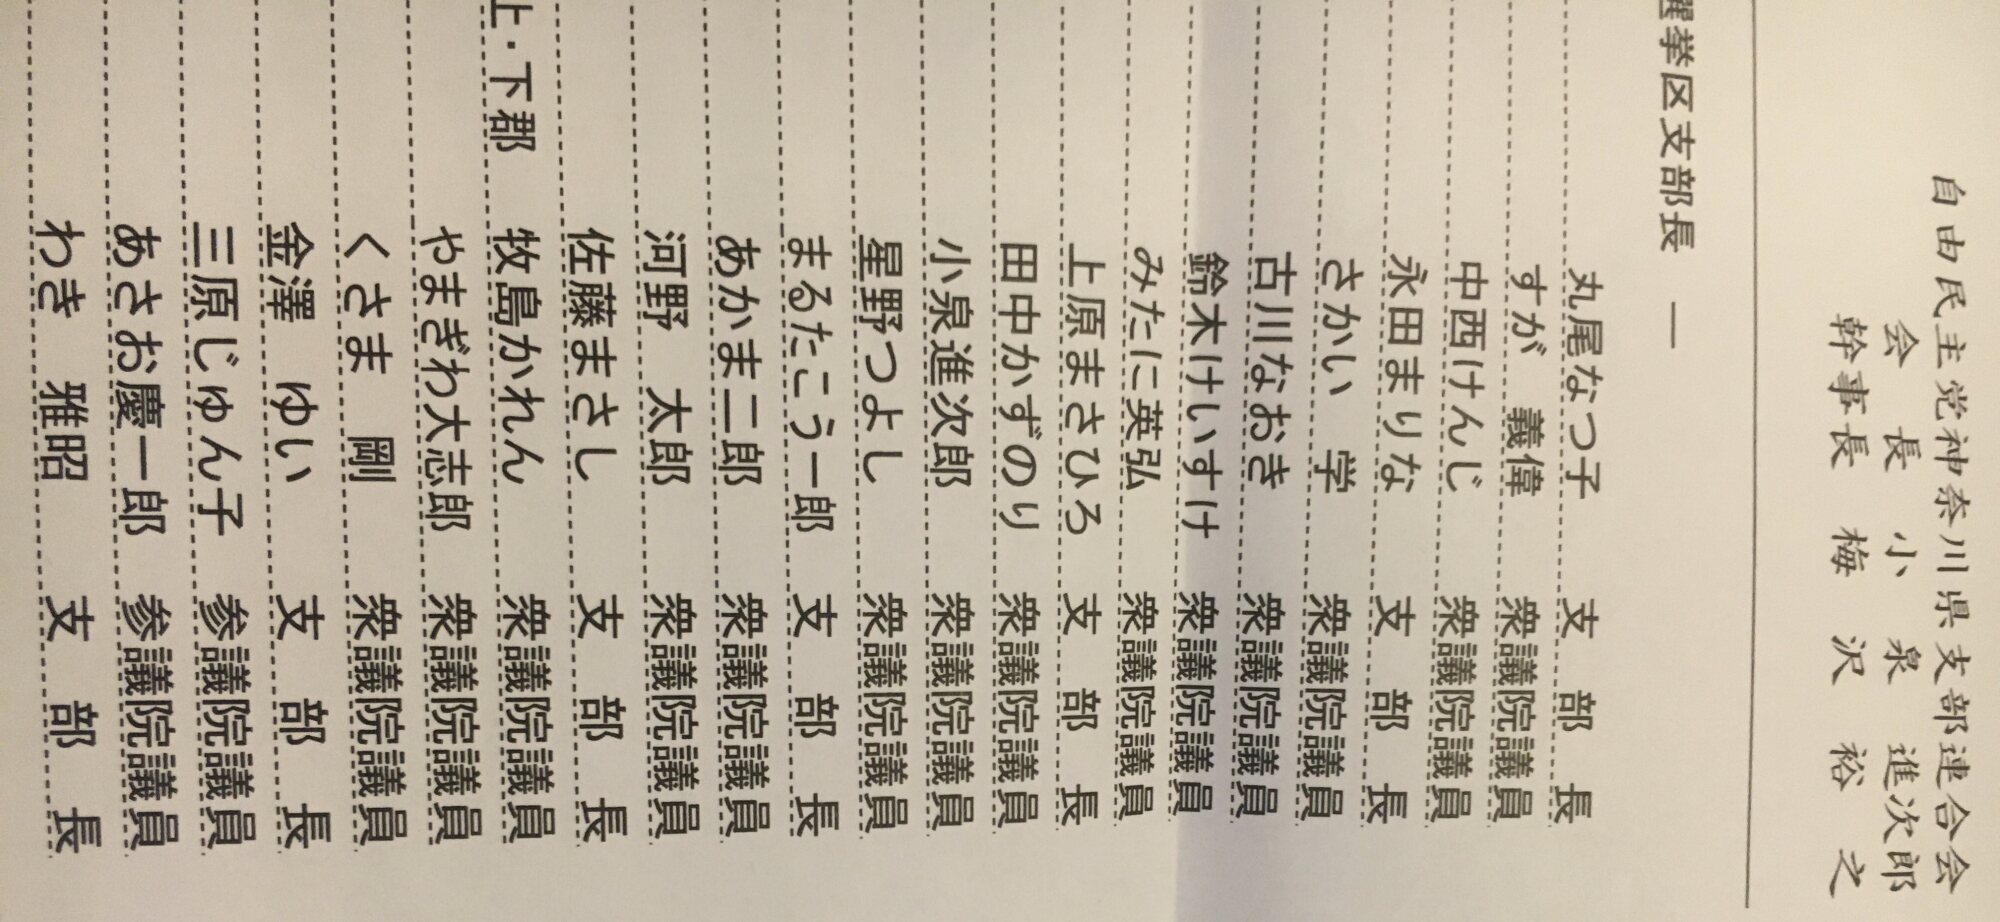 自由民主党神奈川県支部連合会
会長 小泉 進次郎
幹事長 梅沢 裕之
選挙区支部長 ―
丸尾なつ子 支部長
すが 義偉 衆議院議員
中西けんじ 衆議院議員
永田まりな 支部長
さかい 学 衆議院議員
古川なおき 衆議院議員
鈴木けいすけ 衆議院議員
みたに英弘 衆議院議員
上原まさひろ 支部長
田中かずのり 衆議院議員
小泉進次郎 衆議院議員
星野つよし 衆議院議員
まるたこう一郎 支部長
あかま二郎 衆議院議員
河野 太郎 衆議院議員
佐藤まさし 支部長
上・下郡 牧島かれん 衆議院議員
やまぎわ大志郎 衆議院議員
くさま 剛 衆議院議員
金澤 ゆい 支部長
三原じゅん子 参議院議員
あさお慶一郎 参議院議員
わき 雅昭 支部長